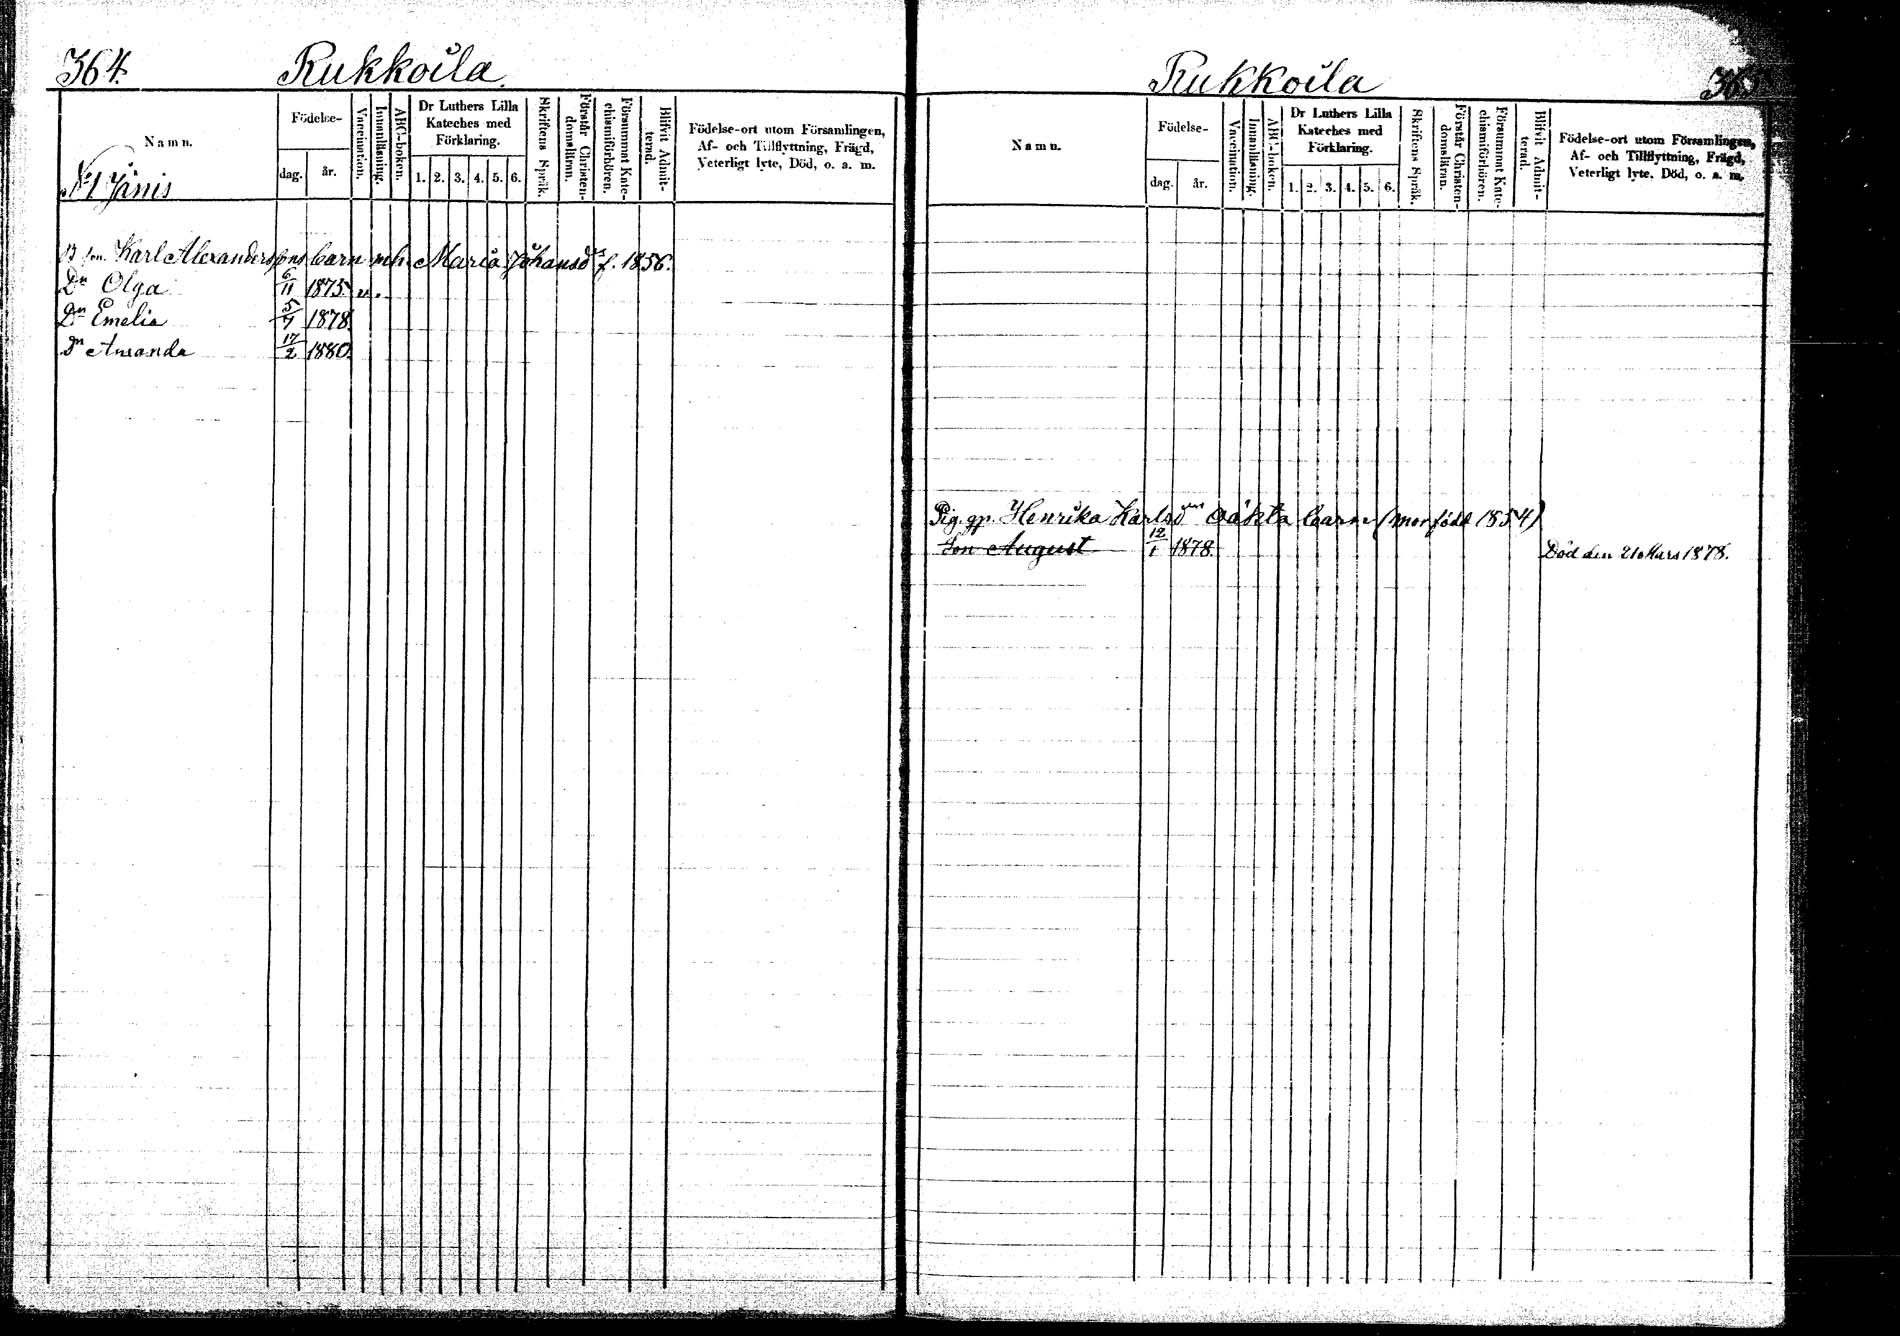 364.
Rukkoila.
Namn.
Födelse-
dag.
år.
Vaccination.
Innanläsning.
ABC-boken.
Dr Luthers Lilla
Kateches med
Förklaring.
1. 2. 3. 4. 5. 6.
Skriftens Språk.
Förstår Christen-
domsläran.
Försummat Kate-
chismiförhören.
Blifvit Admit-
terad.
Födelse-ort utom Församlingen,
Af- och Tillflyttning, Frägd,
Veterligt lyte, Död, o. a. m.
N:1 Jänis
Karl Alexanders sons barn mh. Maria Johansdr f. 1856.
Dr Olga 6/11 1875 v.
Dr Emelia 5/7 1878
Dr Amanda 17/2 1880.
Rukkoila
365
Namn.
Födelse-
dag.
år.
Vaccination.
Innanläsning.
ABC-boken.
Dr Luthers Lilla
Kateches med
Förklaring.
1. 2. 3. 4. 5. 6.
Skriftens Språk.
Förstår Christen-
domsläran.
Försummat Kate-
chismiförhören.
Blifvit Admit-
terad.
Födelse-ort utom Församlingen,
Af- och Tillflyttning, Frägd,
Veterligt lyte, Död, o. a. m.
Pig. gp. Henrika Karlsd oäkta barn (mor född 1854)
Son August 12/1 1878. Död den 21 Mars 1878.